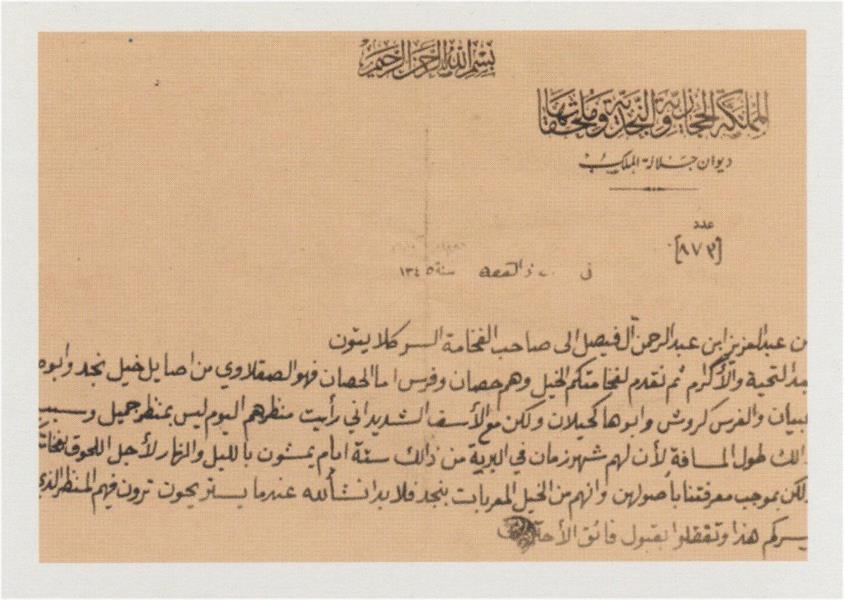 بسم الله الرحمن الرحيم
المملكة الحجازية والنجدية وملحقاتها
ديوان جلالة الملك
عدد
[٨٧٣]
في ذ القعده سنة ١٣٤٥
من عبد العزيز ابن عبد الرحمن آل فيصل الى صاحب الفخامة السر كلايتون
بعد التحية والأكرام ثم نقدم لفخامتكم الخيل وهم حصان وفرس اما الحصان فهو الصقلاوي من اصايل خيل نجد وابوه
عبيان والفرس كروش وابوها كحيلان ولكن مع الأسف الشديد اني رأيت منظرهم اليوم ليس بمنظر جميل وسبب
ذالك طول المسافة لأن لهم شهر زمان في البرية من ذالك ستة ايام يمشون بالليل والنهار لأجل اللحوق
ولكن بموجب معرفتنا بأصولهن وانهم من الخيل المعربات بنجد فلا بد انشألله عندما يستريحون ترون فيهم المنظر الذي
يسركم هذا وتفضلوا بقبول فائق